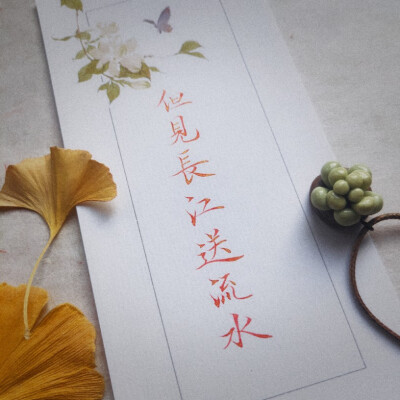 但見長江送流水